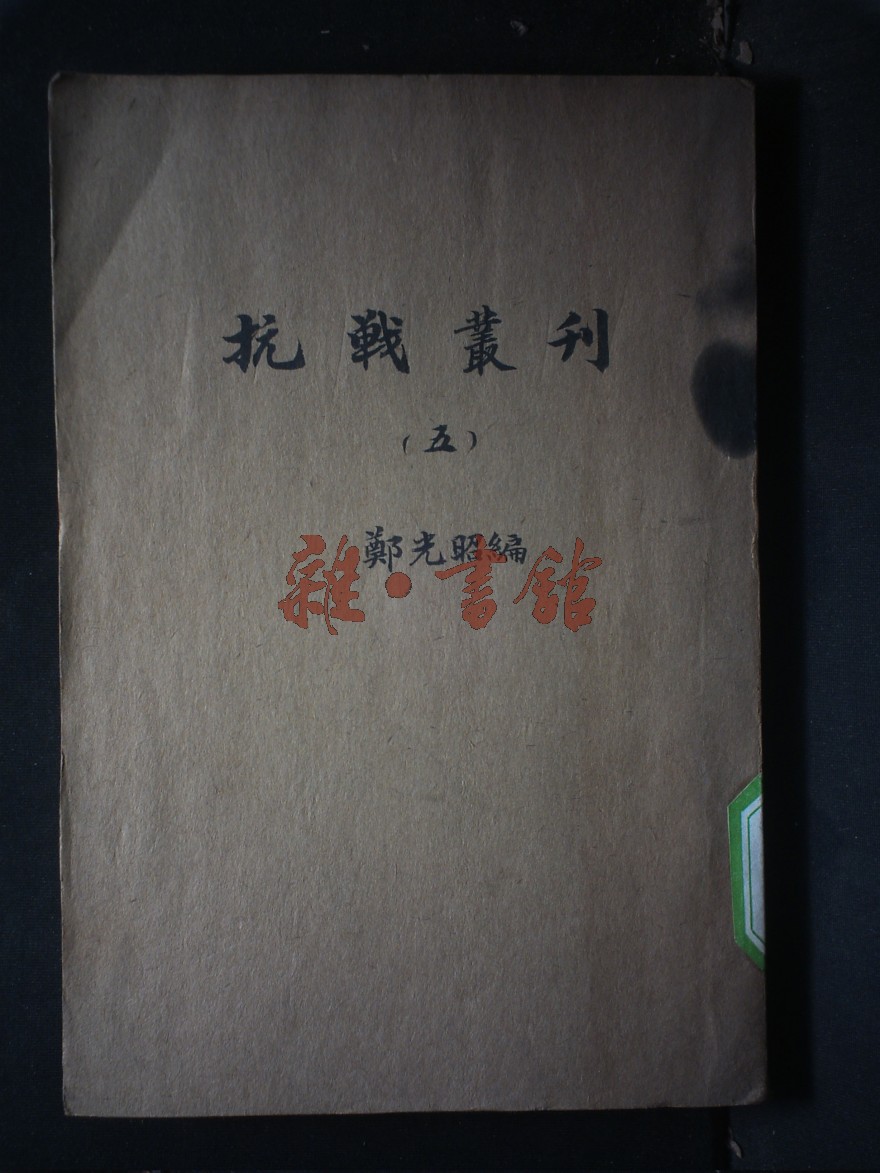 抗戰叢刊
（五）
鄭光昭編
雜·書館